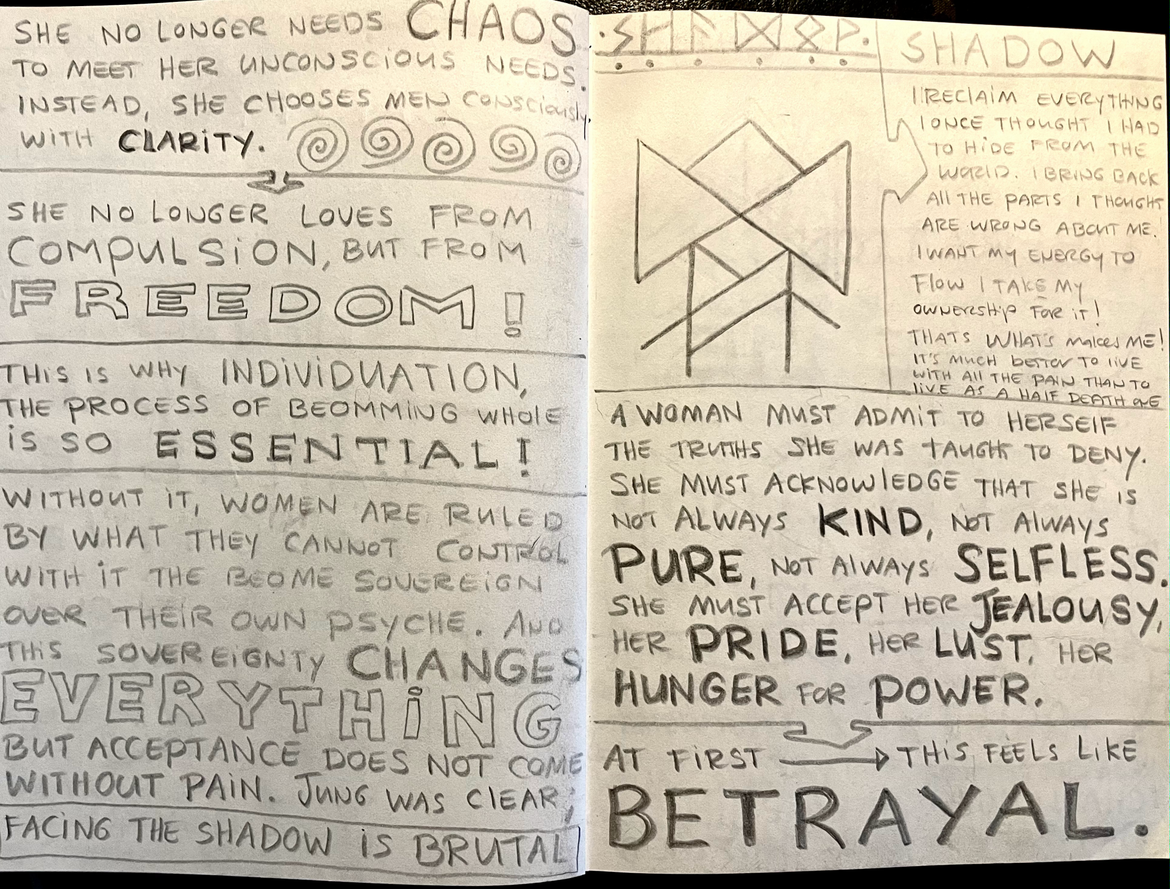 SHE NO LONGER NEEDS CHAOS
TO MEET HER UNCONSCIOUS NEEDS.
INSTEAD, SHE CHOOSES MEN CONSCIOUSLY
WITH CLARITY.
SHE NO LONGER LOVES FROM
COMPULSION, BUT FROM
FREEDOM!
THIS IS WHY INDIVIDUATION,
THE PROCESS OF BEOMMING WHOLE
IS SO ESSENTIAL!
WITHOUT IT, WOMEN ARE RULED
BY WHAT THEY CANNOT CONTROL
WITH IT THE BEOME SOVEREIGN
OVER THEIR OWN PSYCHE. AND
THIS SOVEREIGNTY CHANGES
EVERYTHING
BUT ACCEPTANCE DOES NOT COME
WITHOUT PAIN. JUNG WAS CLEAR;
FACING THE SHADOW IS BRUTAL
ᛊᚺᚨᛞᛟᚹ
SHADOW
I RECLAIM EVERYTHING
I ONCE THOUGHT I HAD
TO HIDE FROM THE
WORLD. I BRING BACK
ALL THE PARTS I THOUGHT
ARE WRONG ABOUT ME.
I WANT MY ENERGY TO
FLOW I TAKE MY
OWNERSHIP FOR IT!
THATS WHAT'S MAKES ME!
IT'S MUCH BETTER TO LIVE
WITH ALL THE PAIN THAN TO
LIVE AS A HALF DEATH ONE
A WOMAN MUST ADMIT TO HERSELF
THE TRUTHS SHE WAS TAUGHT TO DENY.
SHE MUST ACKNOWLEDGE THAT SHE IS
NOT ALWAYS KIND, NOT ALWAYS
PURE, NOT ALWAYS SELFLESS.
SHE MUST ACCEPT HER JEALOUSY,
HER PRIDE, HER LUST, HER
HUNGER FOR POWER.
AT FIRST → THIS FEELS LIKE
BETRAYAL.